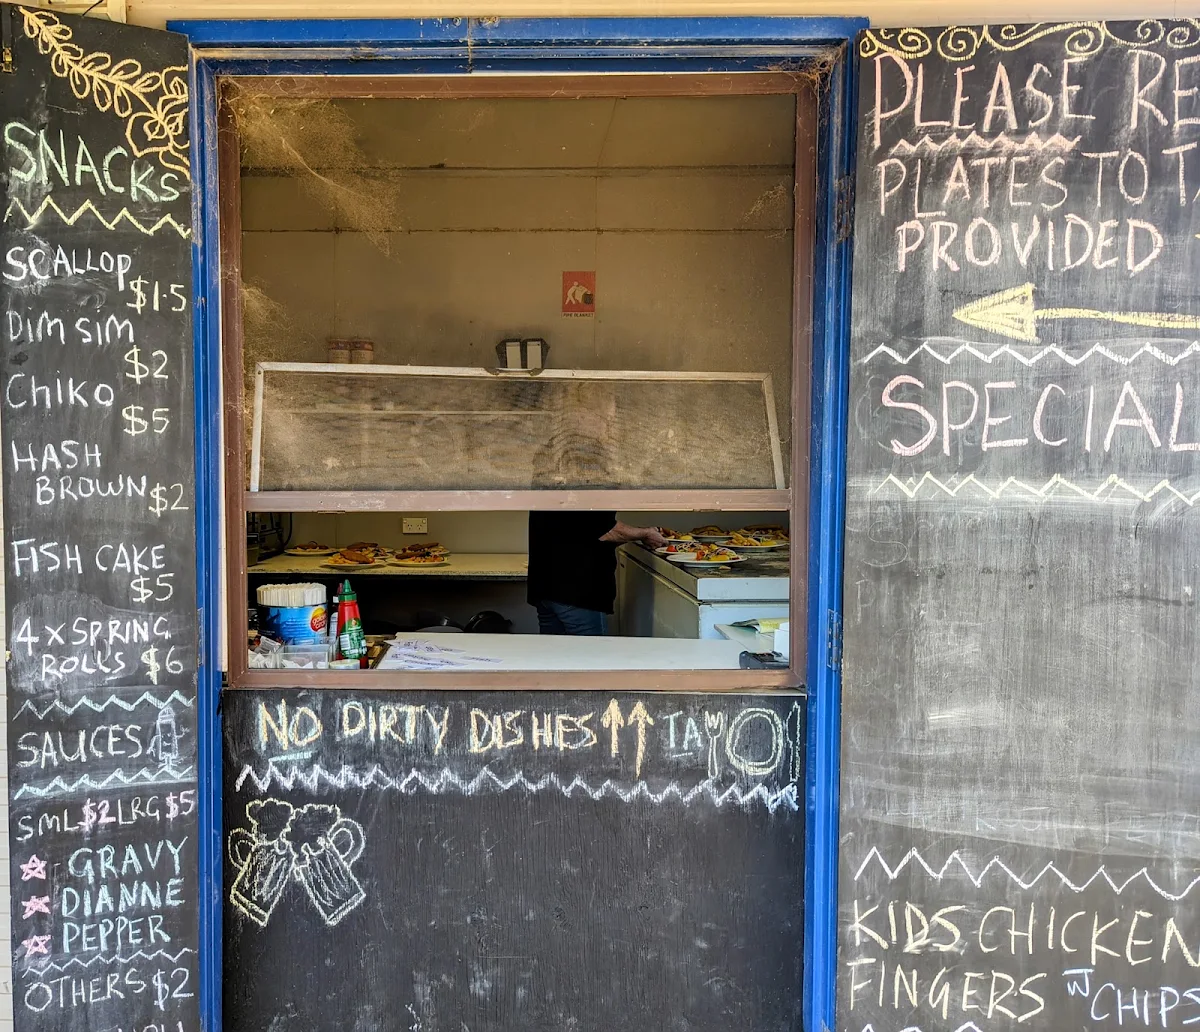 SNACKS
SCALLOP
$1.5
DIM SIM
$2
CHIKO
$5
HASH
BROWN $2
FISH CAKE
$5
4 X SPRING
ROLLS $6
SAUCES
SML $2 LRG $5
GRAVY
DIANNE
PEPPER
OTHERS $2
FIRE BLANKET
NO DIRTY DISHES TA
PLEASE RE
PLATES TO T
PROVIDED
SPECIAL
KIDS CHICKEN
FINGERS W CHIPS